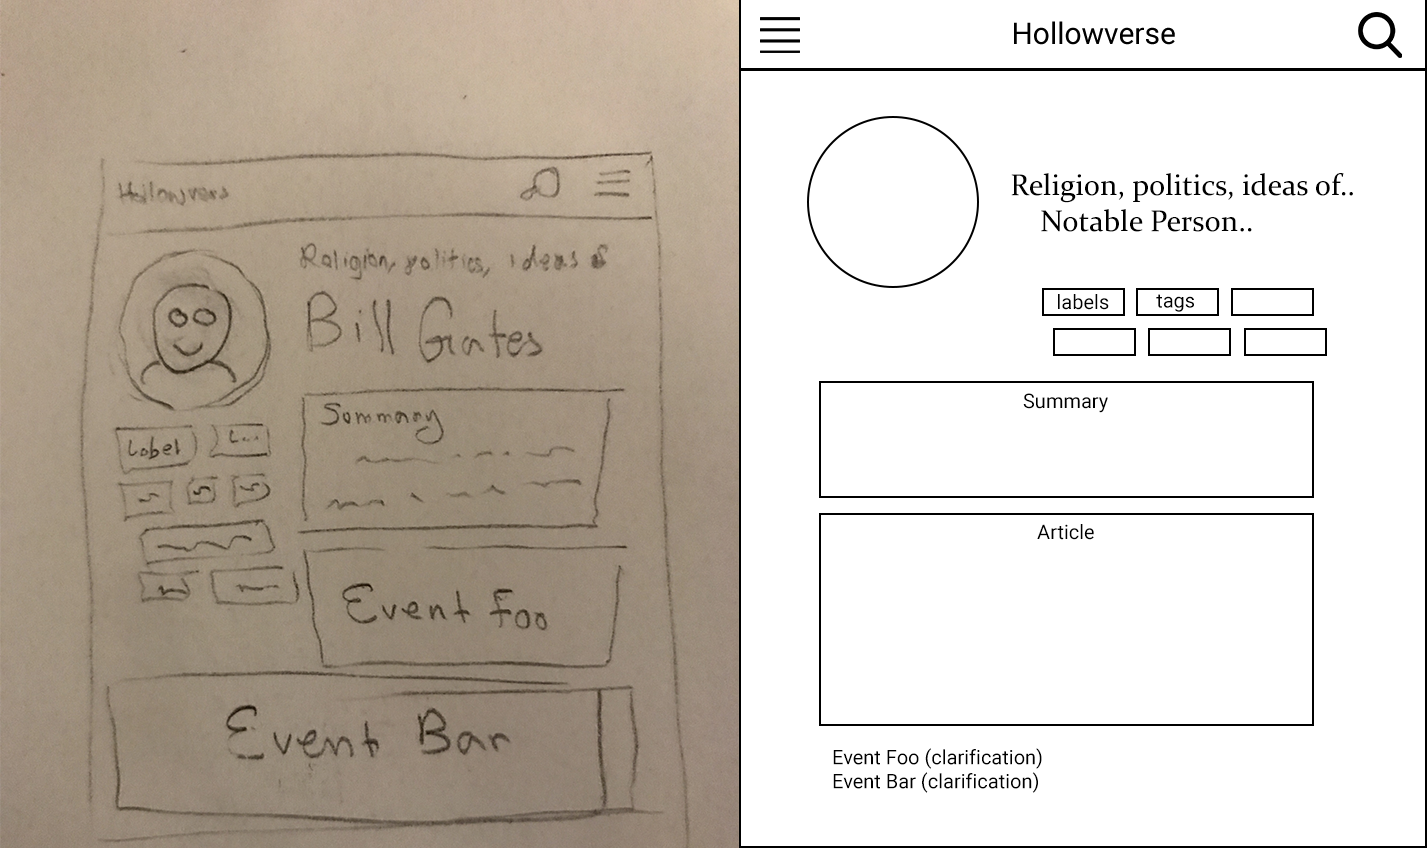 Hollowverse
Religion, politics, ideas of
Bill Gates
Label
L...
Summary
Event Foo
Event Bar
Hollowverse
Religion, politics, ideas of..
Notable Person..
labels tags
Summary
Article
Event Foo (clarification)
Event Bar (clarification)